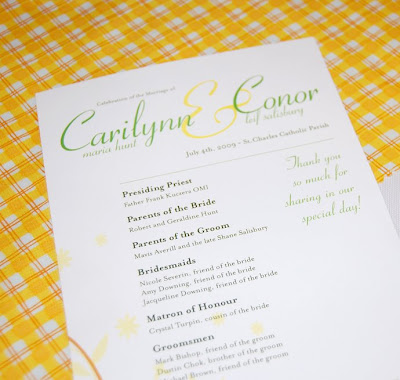 Celebration of the Marriage of
Carilynn & Conor
maria hunt
leif salisbury
July 4th, 2009 - St. Charles Catholic Parish
Thank you
so much for
sharing in our
special day!
Presiding Priest
Father Frank Kuczera OMI
Parents of the Bride
Robert and Geraldine Hunt
Parents of the Groom
Maxis Averill and the late Shane Salisbury
Bridesmaids
Nicole Severin, friend of the bride
Amy Downing, friend of the bride
Jacqueline Downing, friend of the bride
Matron of Honour
Crystal Turpin, cousin of the bride
Groomsmen
Mark Bishop, friend of the groom
Dustin Chok, brother of the groom
Michael Brown, friend of the groom